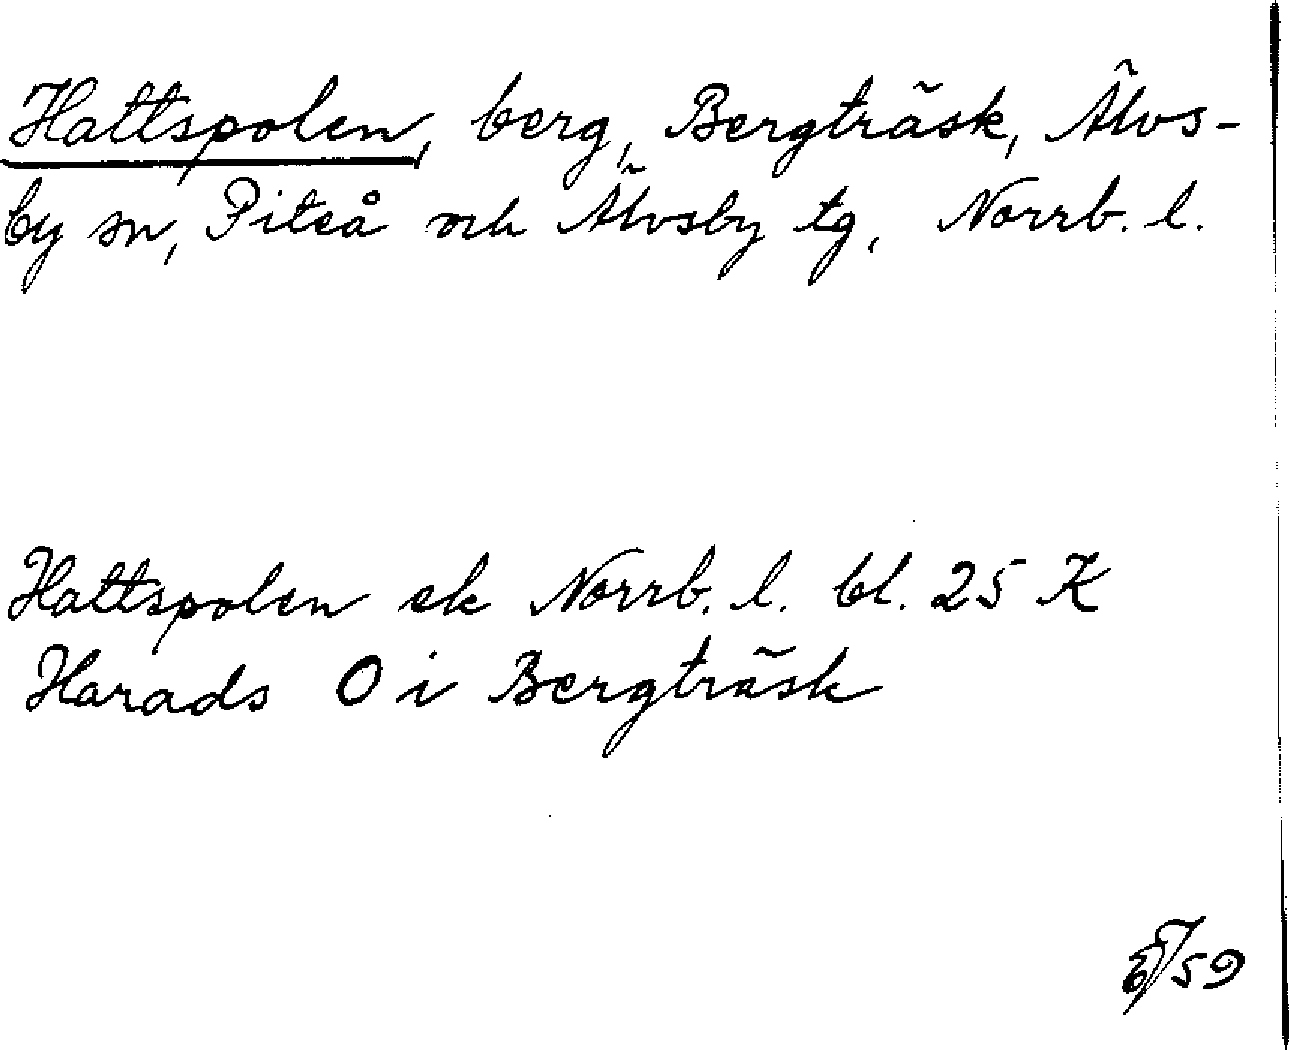 Hattspolen, berg, Bergträsk, Älvs-
by sn, Piteå och Älvsby tg, Norrb. l.
Hattspolen ek Norrb. l. bl. 25 K
Harads O i Bergträsk
59